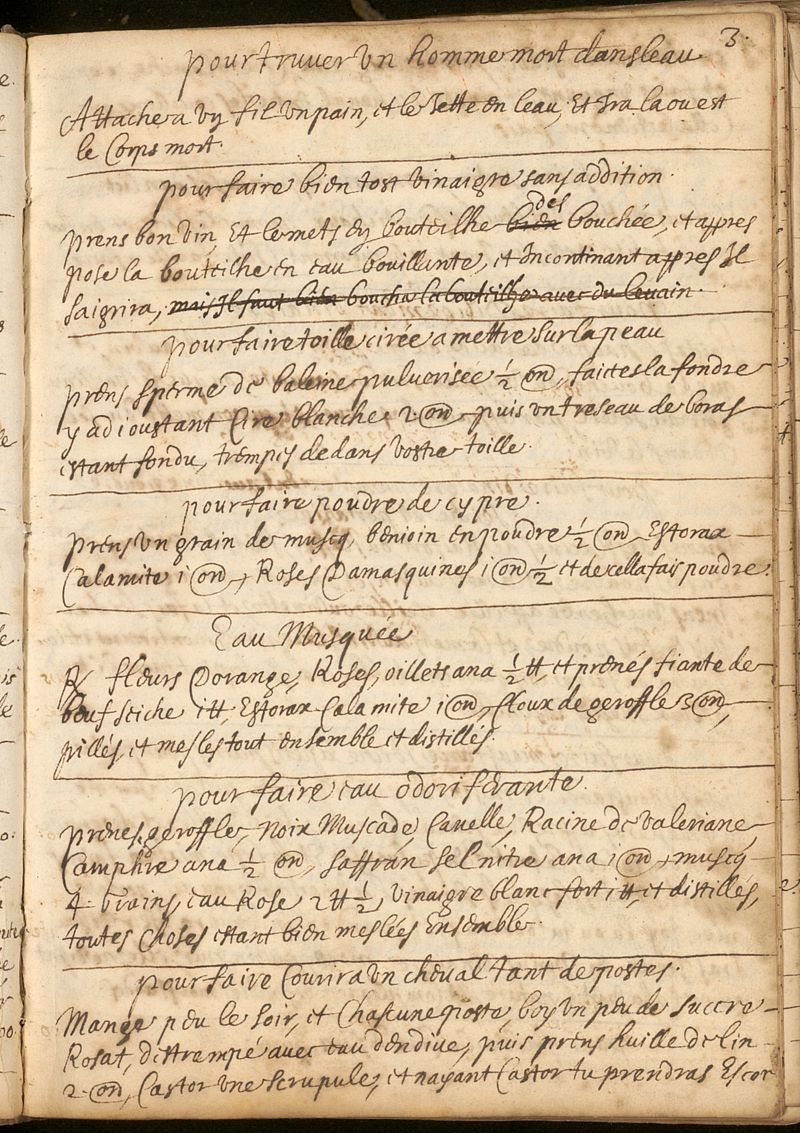 3.
pour truver un homme mort dans leau
Attache a un fil un pain, et le Jette en leau, Et Ira la ou est
le Corps mort.
pour faire bien tost vinaigre sans addition.
des
prens bon vin, Et le mets en bouteilhe bien bouchée, et appres
pose la bouteilhe en eau bouillante, et Incontinant appres Il
saigrira, mais Il faut bien boucha la bouteilhe avec du levain.
pour faire toille cirée a mettre sur la peau
prens sperme de baleine pulverisée ½ on, faictes la fondre
y adioustant Cire blanche 2 on puis un treseau de boras
estant fondu, trempés dedans vostre toille.
pour faire poudre de cypre.
prens un grain de musq, benioin en poudre ½ on Estorax
Calamite i on, Roses Damasquines i on ½ et de cella fais poudre.
Eau Musquée
℞ fleurs Dorange, Roses, oillets ana ½ ℔, et prenés fiante de
beuf seiche i ℔, Estorax Calamite i on, Cloux de geroffle 3 on,
pillés, et mesles tout ensemble et distillés.
pour faire eau odoriferante.
prenes, geroffle, noix Muscade, Canelle, Racine de valeriane
Camphre ana ½ on, saffran sel nitre ana i on, musq
4 grains, eau Rose 2 ℔ ½, vinaigre blanc fort i ℔, et distillés,
toutes choses estant bien meslées Ensemble.
pour faire Courir a un cheval tant de postes.
Mange peu le soir, et Chascune poste boy un peu de succre
Rosat, distrampé avec eau dendive, puis prens huille de lin
2 on, Castor une scrupule, et nayant Castor tu prendras Escor